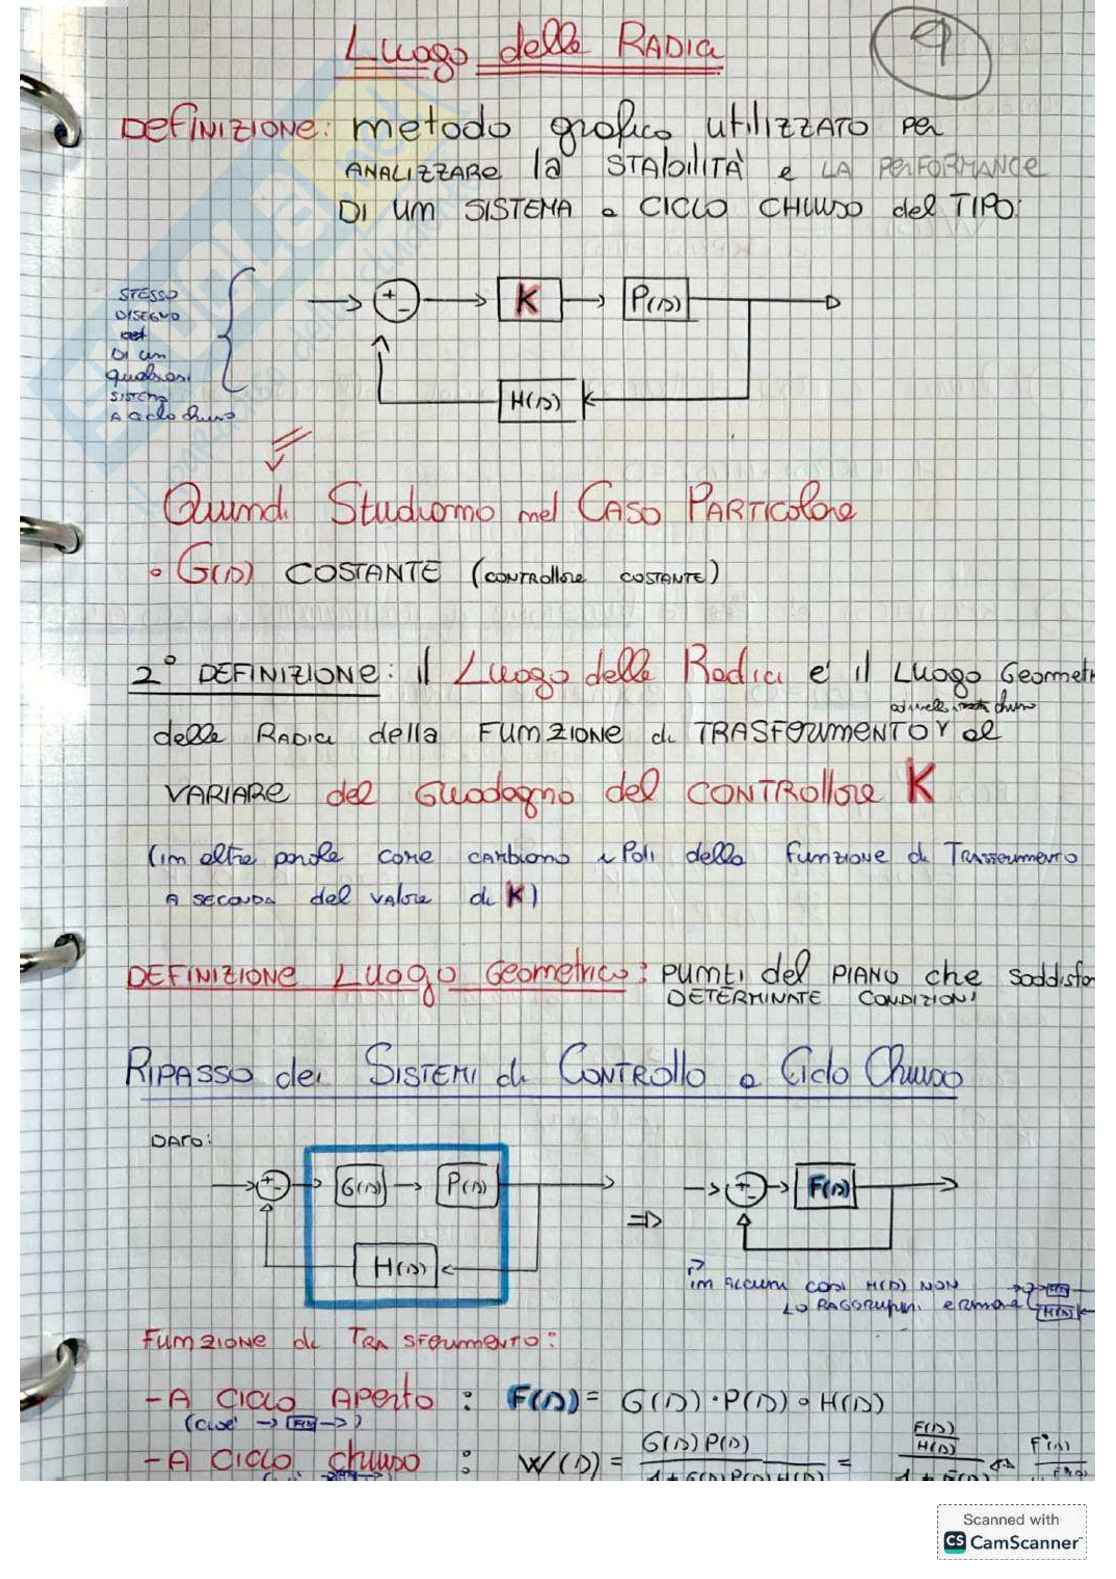 Luogo delle RADICI
9
DEFINIZIONE: metodo grafico UTILIZZATO per
ANALIZZARE la STABILITÀ e LA PERFORMANCE
DI UM SISTEMA a CICLO CHIUSO del TIPO:
STESSO
DISEGNO
DI UN
qualsiasi
SISTEMA
A ciclo chiuso
+
-
K
P(s)
H(s)
Quindi Studiamo nel CASO PARTICOLARE
• G(s) COSTANTE (CONTROLLORE COSTANTE)
2° DEFINIZIONE: Il Luogo delle Radici e' il Luogo Geomet
chiuso
delle RADICI della FUMZIONE di TRASFERIMENTO al
VARIARE del Guadagno del CONTROLLORE K
(im altre parole come cambiamo i Poli della Funzione di TRASFERIMENTO
A SECONDA del valore di K)
DEFINIZIONE Luogo Geometrico: PUMTI del PIANO che soddisfa
DETERMINATE CONDIZIONI
RIPASSO dei SISTEMI di CONTROLLO a Ciclo Chiuso
DATO:
+
-
G(s)
P(s)
H(s)
=>
+
-
F(s)
im ALCUNI CASI H(s) NON
LO RAGGRUPPI e rimane
H(s)
FUMZIONE di TRASFERIMENTO:
- A CICLO APERTO : F(s) = G(s) · P(s) · H(s)
(cioè → F(s) →)
- A CICLO chiuso : W(s) = G(s) P(s) / 1 + G(s) P(s) H(s) = F(s)/H(s) / 1 + F(s)
Scanned with
CS CamScanner